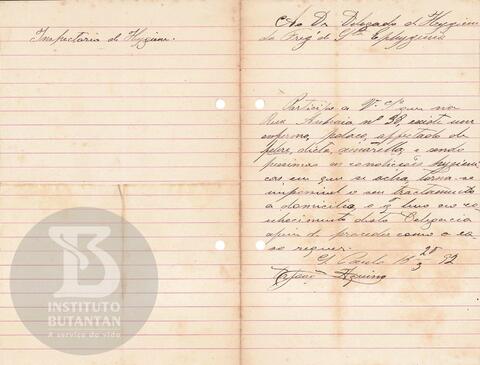 Inspectoria de Hygiene.
Ao Dr. Delegado de Hygiene
da Freg.ª de Sta Ephygenia
Participo a V. S.ª que na
Rua Aurora nº 38, existe um
enfermo, polaco, affectado de
febre, dicta, amarella, e sendo
pessimas as condições hygieni-
cas em que se acha, torna-se
impossivel o seu tractamento
a domicilio, o q' levo ao co-
nhecimento desta Delegacia
afim de proceder como o ca-
so requer.
S. Paulo 28/3 92
Aquino
INSTITUTO
BUTANTAN
A serviço da vida